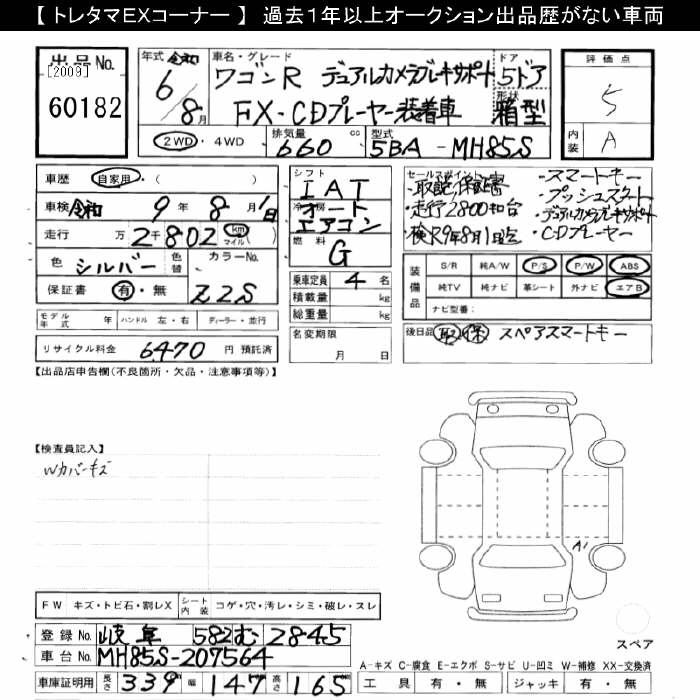 【 トレタマEXコーナー 】 過去1年以上オークション出品歴がない車両
出品No.
[2009]
60182
年式 令和
6/8月
車名・グレード
ワゴンR デュアルカメラブレーキサポート
FX-CDプレーヤー装着車
ドア
5ドア
形状
箱型
評価点
5
内装
A
2WD・4WD
排気量
660 cc
型式
5BA-MH85S
車歴 自家用・( )
車検 令和 9年 8月 1日
走行 万 2千 802 km マイル( )
色 シルバー 色替
カラーNo.
Z2S
保証書 有・無
モデル年式 年 ハンドル 左・右 ディーラー・並行
リサイクル料金 6470 円 預託済
シフト
IAT
冷房
オート
エアコン
燃料
G
乗車定員 4 名
積載量 kg
総重量 kg
名変期限
月 日
セールスポイント
・取説、保証書
・走行2800km台
・検R9年8月1日迄
・スマートキー
・プッシュスタート
・デュアルカメラブレーキサポート
・CDプレーヤー
装備品
S/R 純A/W P/S P/W ABS
純TV 純ナビ 革シート 外ナビ エアB
ナビ型番:
後日品 取 保 スペアスマートキー
【出品店申告欄(不良箇所・欠品・注意事項等)】
【検査員記入】
Wカバーキズ
A1
FW キズ・トビ石・割レX シート内装 コゲ・穴・汚レ・シミ・破レ・スレ
登録No. 岐阜 582む 2845
車台No. MH85S-207564
車庫証明用 長さ 339 幅 147 高さ 165
スペア
A-キズ C-腐食 E-エクボ S-サビ U-凹ミ W-補修 XX-交換済
工具 有・無 ジャッキ 有・無